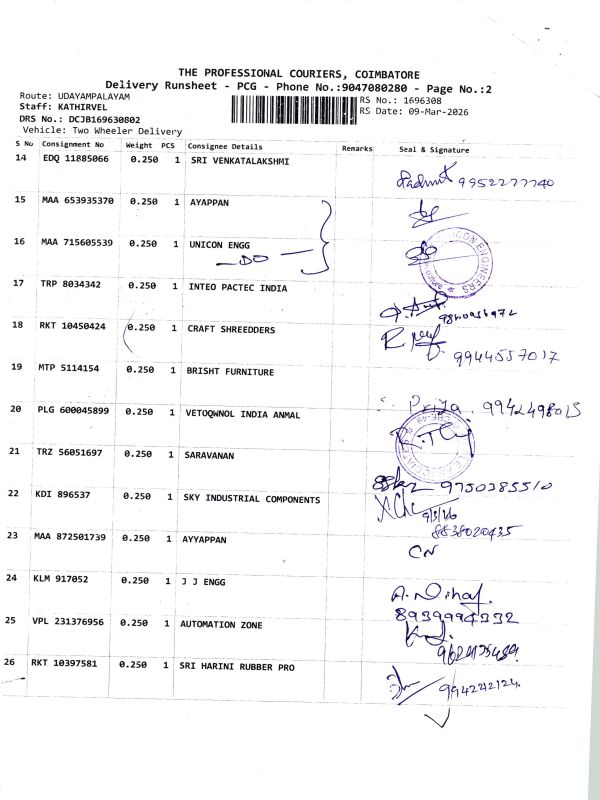 THE PROFESSIONAL COURIERS, COIMBATORE
Delivery Runsheet - PCG - Phone No.:9047080280 - Page No.:2
Route: UDAYAMPALAYAM
Staff: KATHIRVEL
DRS No.: DCJB169630802
Vehicle: Two Wheeler Delivery
RS No.: 1696308
RS Date: 09-Mar-2026
S No Consignment No Weight PCS Consignee Details Remarks Seal & Signature
14 EDQ 11885066 0.250 1 SRI VENKATALAKSHMI
9952277740
15 MAA 653935370 0.250 1 AYAPPAN
16 MAA 715605539 0.250 1 UNICON ENGG
DO
ENGINEERS
17 TRP 8034342 0.250 1 INTEO PACTEC INDIA
18 RKT 10450424 0.250 1 CRAFT SHREEDDERS
9944557017
19 MTP 5114154 0.250 1 BRISHT FURNITURE
20 PLG 600045899 0.250 1 VETOQWNOL INDIA ANMAL
Priya
21 TRZ 56051697 0.250 1 SARAVANAN
9750385510
22 KDI 896537 0.250 1 SKY INDUSTRIAL COMPONENTS
9/3/26
8838020435
23 MAA 872501739 0.250 1 AYYAPPAN
CN
24 KLM 917052 0.250 1 J J ENGG
8939994332
25 VPL 231376956 0.250 1 AUTOMATION ZONE
26 RKT 10397581 0.250 1 SRI HARINI RUBBER PRO